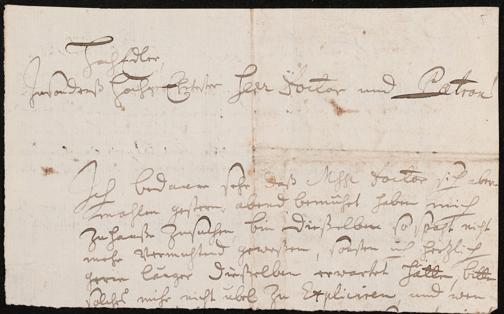 HochEdler,
Insonders Hochge Ehrtester Herr Doctor und Patron
Ich bedaure sehr daß Mhh Doctor sich aber
mahlen gestern abend bemühet haben mich
zu hauße zusuchen bin Dießelben so späht nicht
mehr vermuthend geweßen, sonsten ich hertzlich
gerne länger Dießelben erwartet hätte, bitte
solches mihr nicht übel zu expliciren, und wen